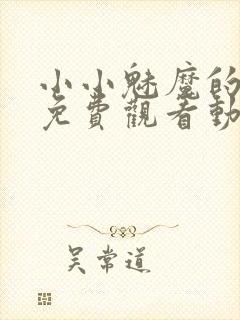 小小魅魔的
免費觀看動
吳常道